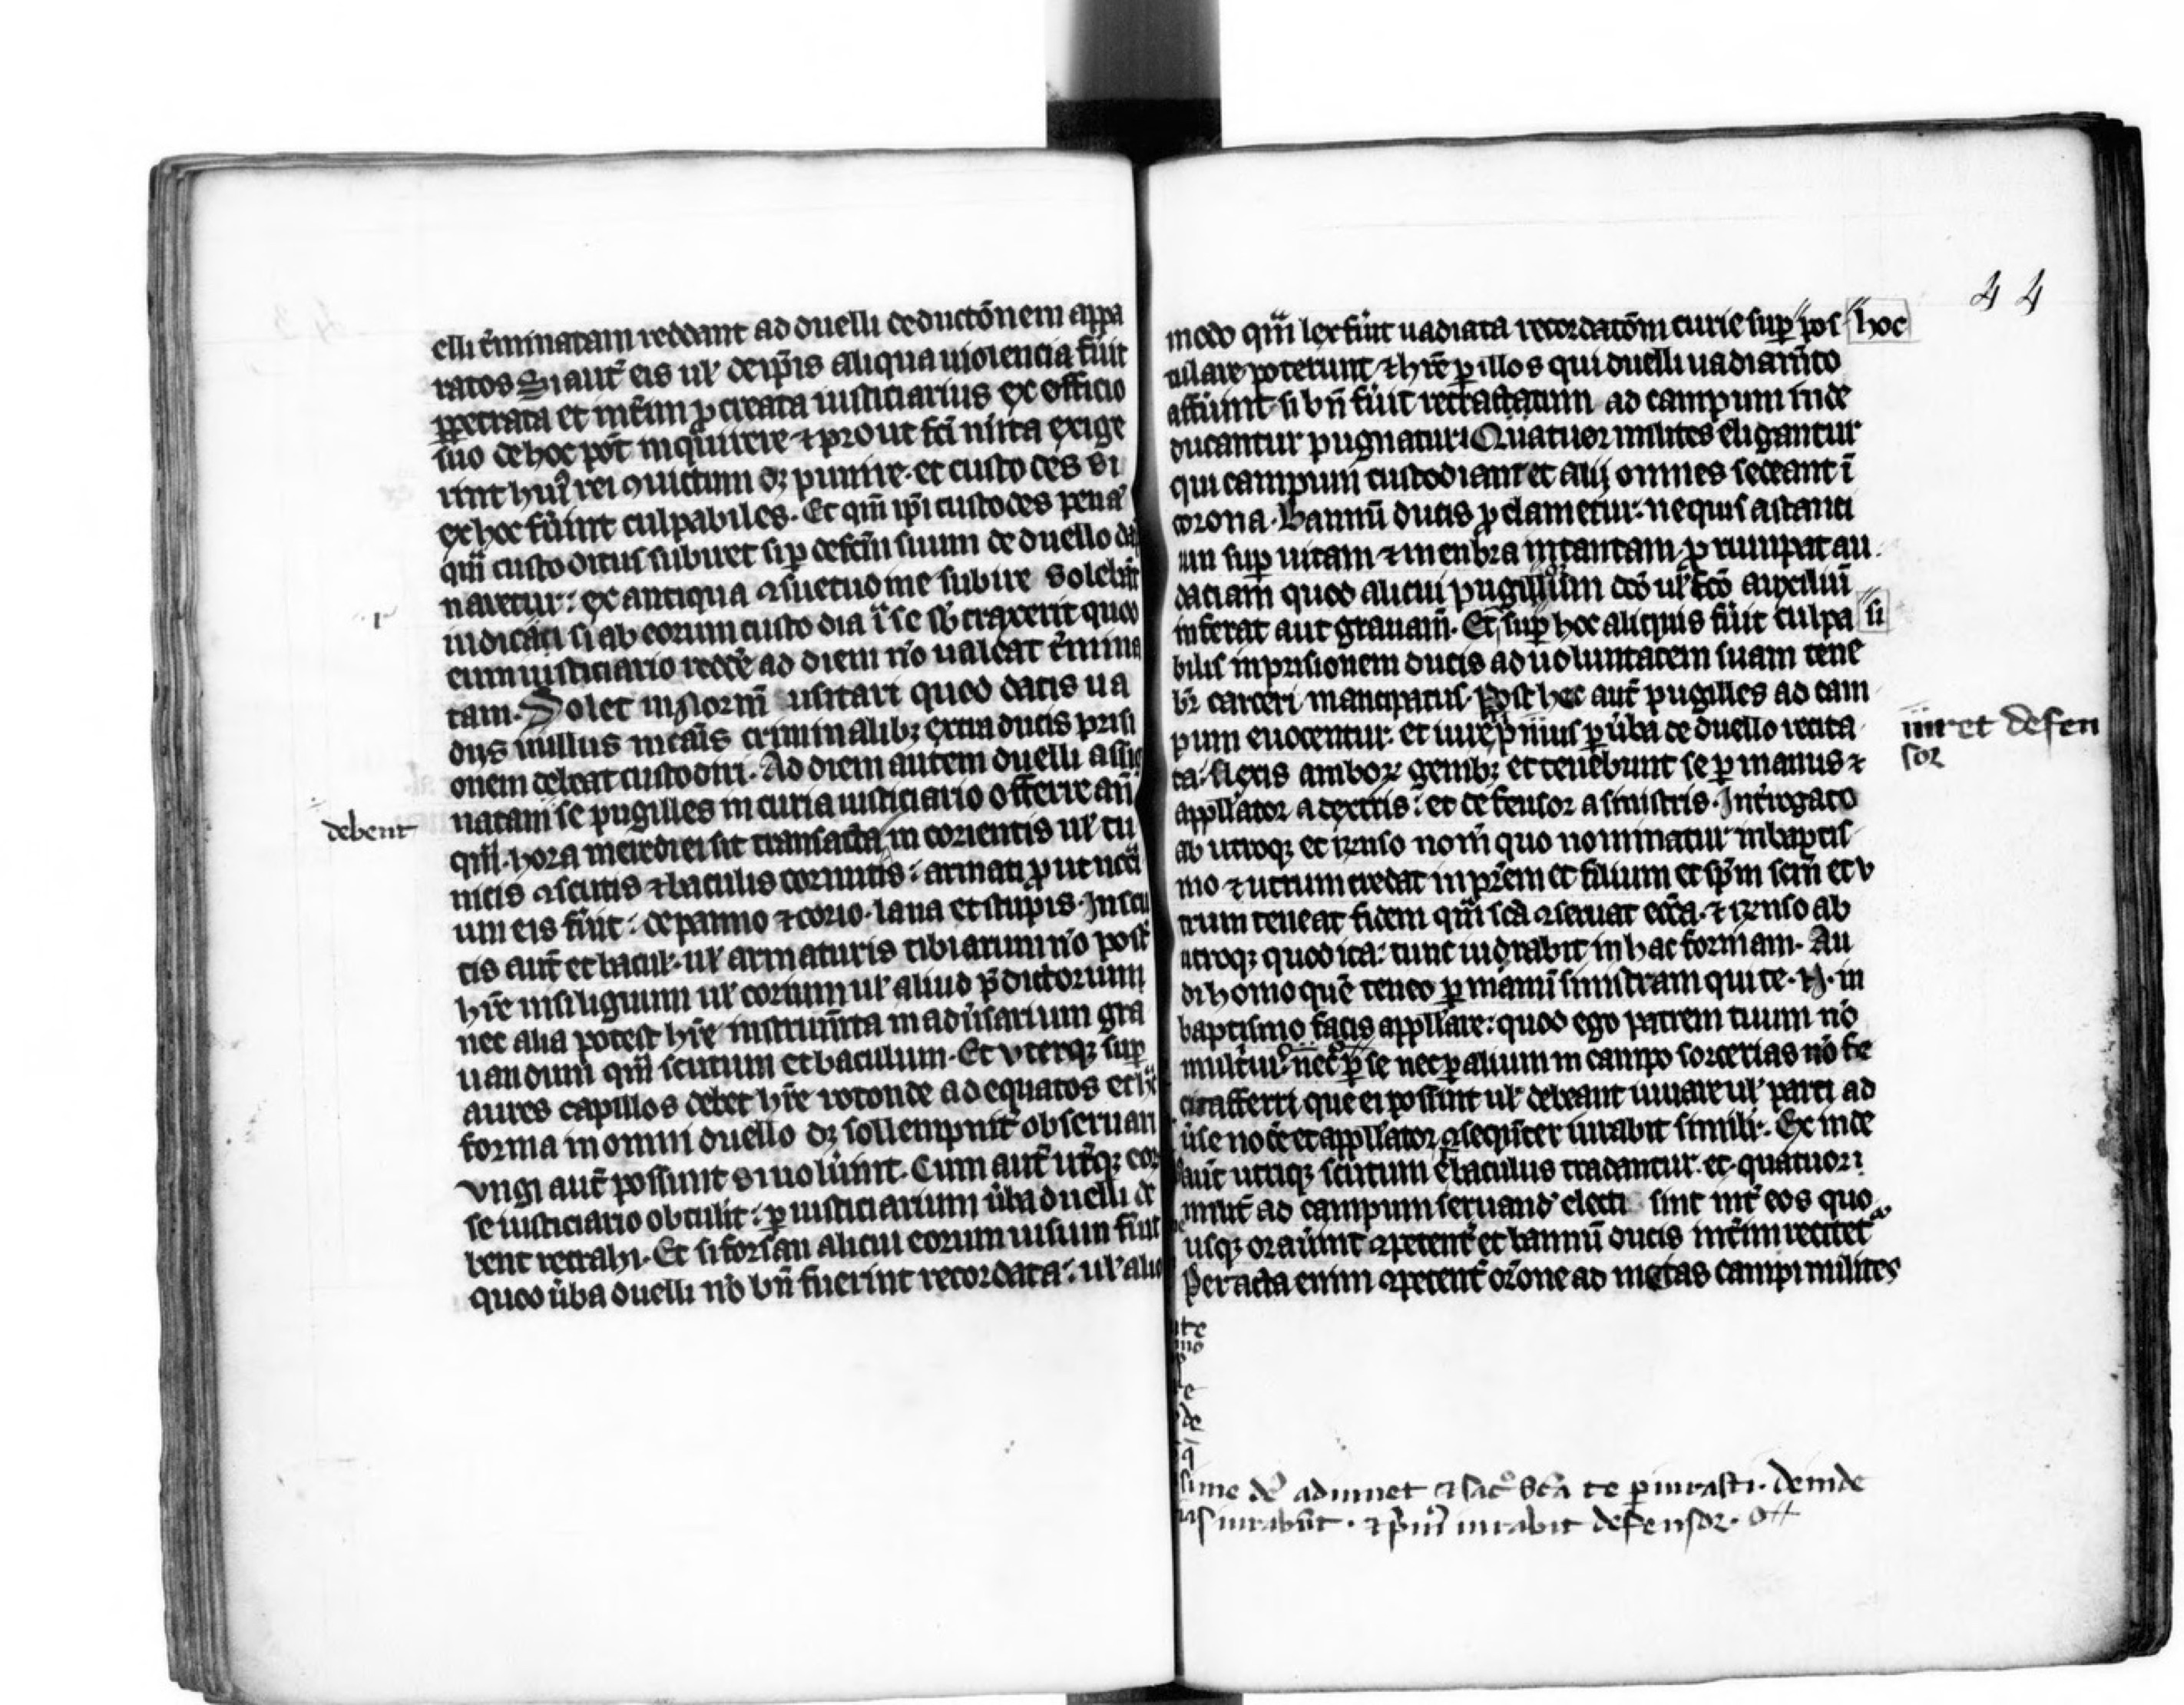 elli t̄minatam reddant ad duelli deductōnem appa
ratos Si aut̄ eis ul̓ de ip̄is aliqua uiolencia fūit
ꝑpetrata et int̄im ꝓcreata iusticiarius ex officio
suo de hoc pōt inquirere ⁊ prout fc̄i
rint huī rei ꝯuictum dꝫ punire. et custodes si
ex hoc fūint culpabiles. Et qm̄ ip̄i custodes penā
qm̄ custoditus subiret si ꝑ defc̄m suum de duello
naretur: ex antiqua ꝯsuetudine subire solebāt
iudicāti si ab eorum custodia se sb̄traxerit quod
eum iusticiario redde ad diem nō ualeat t̄mina
tam. Solet in Norm̄ usitari quod datis ua
diis nullus in cāis criminalibꝫ extra ducis prisi
onem debeat custodiri. Ad diem autem duelli assig
natam se pugilles in curia iusticiario offerre an̄
debent
qm̄ hora meridiei sit transacta in corietis ul̓ tu
nicis ꝯscutis ⁊ baculis cornutis: armati ꝓut nc̄ā
um eis fūit: de panno ⁊ corio. lana et stupis. In scu
tis aut̄ et bacul̓. ul̓ armaturis tibiarum nō pōt
hr̄e nisi lignum ul̓ corium ul̓ aliud p̄dictorum
nec alia potest hr̄e instrum̄ta in adu̓sarium gra
uandum qm̄ scutum et baculum. Et uterqꝫ suꝑ
aures capillos debet hr̄e rotonde adequatos et h̄
forma in omni duello dꝫ sollempnit̄ obseruari
ungi aut̄ possunt si uolūint. Cum aut̄ ut̓qꝫ eoꝝ
se iusticiario obtulit: ꝑ iusticiarium u̓ba duelli de
bent retrahi. Et si forsan alicui eorum uisum fūit
quod u̓ba duelli nō bn̄ fuerint recordata: ul̓ alio
modo qm̄ lex fūit uadiata recordatōm curie suꝑ hoc pos
tulare poterunt ⁊ hr̄e ꝑ illos qui duelli uadiam̄to
affūint si bn̄ fūit retractatum ad campum inde
ducantur pugnaturi Quatuor milites eligantur
qui campum custodiant et alij omnes sedeant ī
corona. Bannū ducis ꝓclametur. ne quis astanti
um suꝑ uitam ⁊ membra in tantam ꝓrumpat au
daciam quod alicui pugillum dc̄o ul̓ fc̄o auxiliū
inferat aut grauam̄. Et si suꝑ hoc aliquis fūit culpa
bilis in prisionem ducis ad uoluntatem suam tene
br̄ carceri mancipatus. Post hec aut̄ pugilles ad cam
pum euocentur. et iuret defensor
ꝑ u̓ba de duello recita
ta. flexis amboꝝ genibꝫ et tenebunt se ꝑ manus ⁊
appllator a dextris: et defensor a sinistris. Int̓rogato
ab utroqꝫ et rn̄so nom̄ quo nominatur in baptis
mo ⁊ utrum credat in pr̄em et filium et sp̄m scm̄ et u
trum teneat fidem qm̄ scā ꝯseruat ecc̄a. ⁊ rn̄so ab
utroqꝫ quod ita: tunc iurabit in hac formam. Au
di homo quē teneo ꝑ manū sinistram qui te. N. in
baptismo facis appllare: quod ego patrem tuum nō
nec ꝑ se nec ꝑ alium in campo sorcerias nō fe
cit afferri que ei possint ul̓ debeant iuuare ul̓ parti ad
u̓se nocē et appllator ꝯsequēter iurabit simili. Ex inde
aut̄ utriqꝫ scutum et baculus tradantur. et quatuor
milit̄ ad campum seruand̓ electi sint int̓ eos quo
usqꝫ orauīnt ꝯpetent̄ et bannū ducis int̄im recitet̄
Peracta enim ꝯpetent̄ or̄one ad metas campi milites
44
me de̓ adiuuet ⁊ sac̊ scā te ꝑiurasti. deinde
iurabūt. ⁊ p̄mo iurabit defensor.